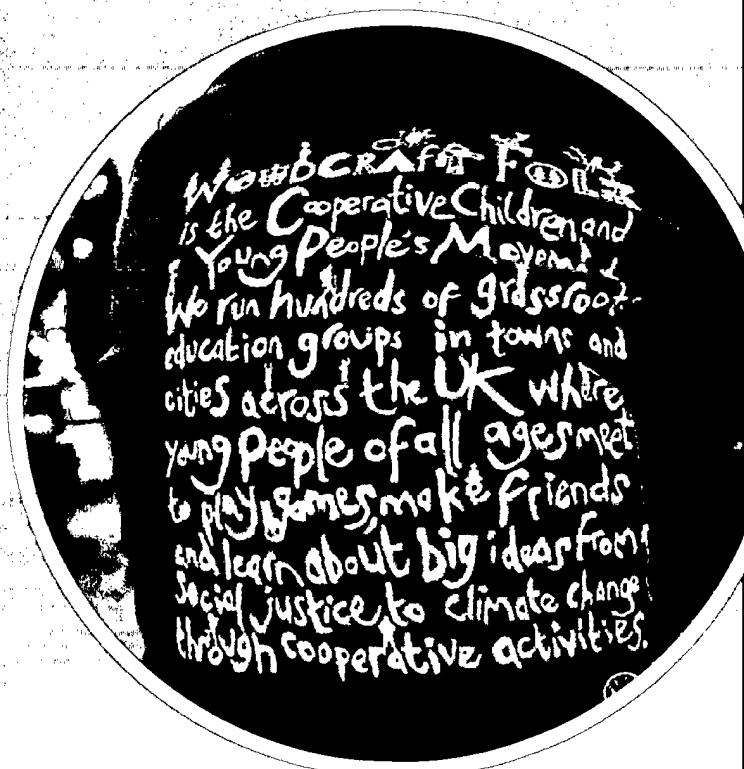 WOODCRAFT FOLK
is the Cooperative Children and
Young People's Movement
We run hundreds of grassroot
education groups in towns and
cities across the UK where
young people of all ages meet
to play games, make friends
and learn about big ideas from
social justice to climate change
through cooperative activities.